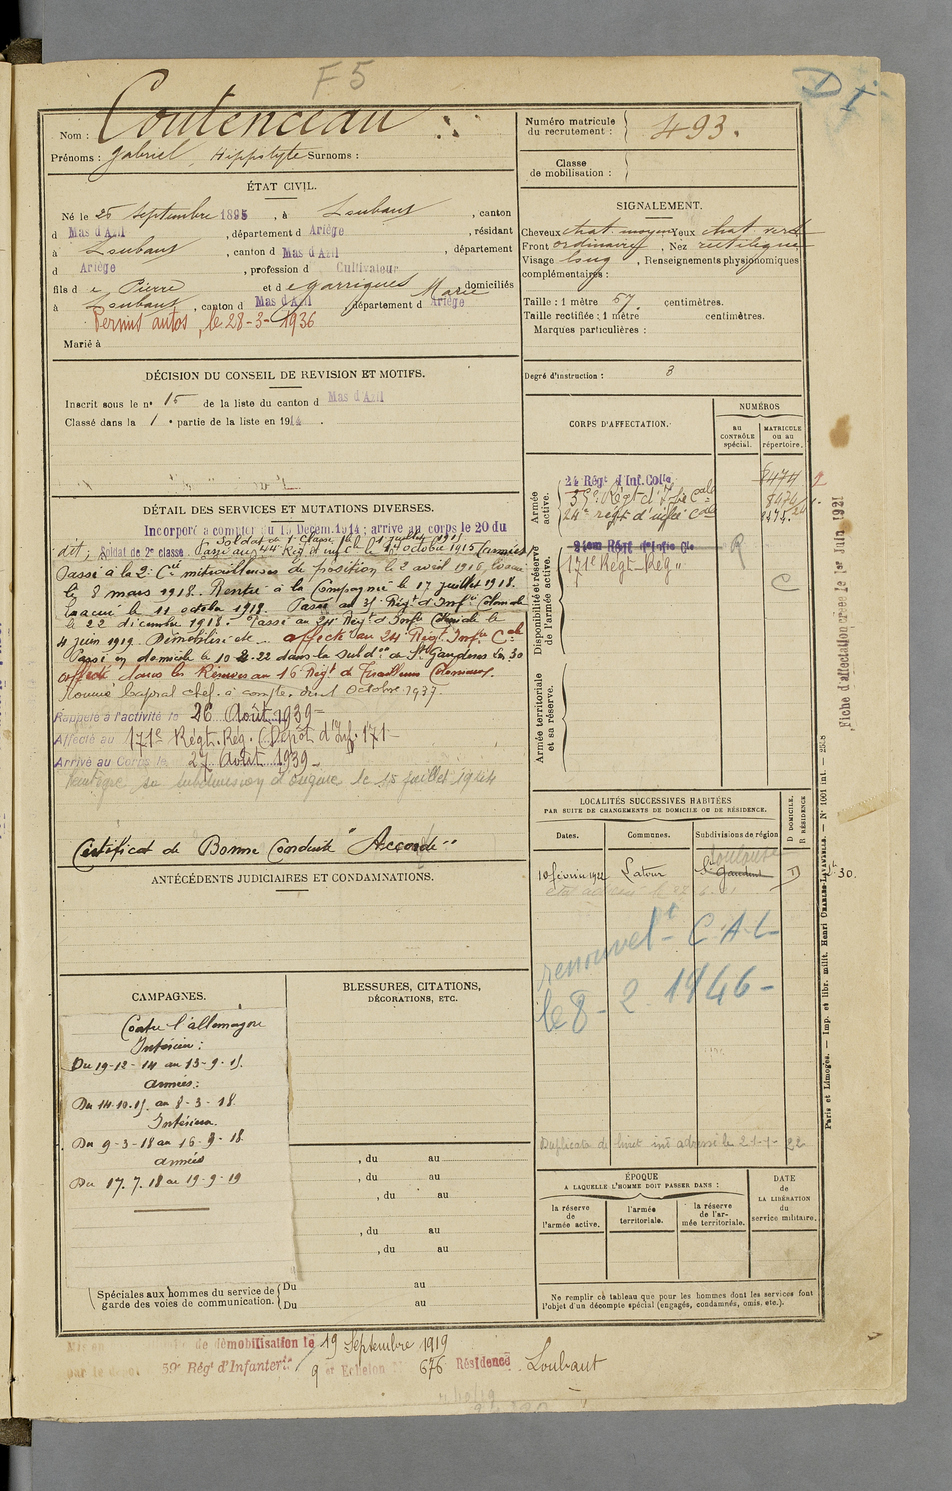 F 5
D I
Nom : Coutenceau
Prénoms : Gabriel, Hippolyte Surnoms :
Numéro matricule du recrutement : 493.
Classe de mobilisation :
ÉTAT CIVIL.
Né le 25 septembre 1895, à Loubaut, canton
d Mas d'Azil, département d Ariège, résidant
à Loubaut, canton d Mas d'Azil, département
d Ariège, profession d Cultivateur
fils d e Pierre et d e Garrigues Marie domiciliés
à Loubaut, canton d Mas d'Azil département d Ariège
Permis autos, le 28-3-1936
Marié à
SIGNALEMENT.
Cheveux chat. moyen Yeux chat. verd
Front ordinaire, Nez rectiligne
Visage long, Renseignements physionomiques
complémentaires :
Taille : 1 mètre 57 centimètres.
Taille rectifiée : 1 mètre centimètres.
Marques particulières :
Degré d'instruction : 3
DÉCISION DU CONSEIL DE REVISION ET MOTIFS.
Inscrit sous le n° 15 de la liste du canton d Mas d'Azil
Classé dans la 1 e partie de la liste en 1914.
CORPS D'AFFECTATION.
NUMÉROS
AU CONTRÔLE spécial.
MATRICULE OU AU répertoire.
Armée active.
24 Régt d'Inf. Colle
24e régt d'infie Cale
Disponibilité et réserve de l'armée active.
171e Régt-Rég"
R
C
Armée territoriale et sa réserve.
DÉTAIL DES SERVICES ET MUTATIONS DIVERSES.
Incorporé à compter du 15 Décem. 1914 ; arrivé au corps le 20 du
dit; Soldat de 2e classe.
Passé à la 2e Cie mitrailleuses de position le 2 avril 1916, Evacué
le 8 mars 1918. Rentré à la Compagnie le 17 juillet 1918.
Evacué le 11 octobre 1918. Passé au 3e Régt d'Infie Coloniale
le 22 décembre 1918. Passé au 24e Régt d'Infie Coloniale le
4 juin 1919. Démobilisé le affecté au 24 Régt Infie Cale
Passé en domicile le 10-2-22 dans la subdon de St Gaudens Les 30
affecté dans les Réserves au 16e Régt de Tirailleurs Coloniaux.
Nommé Caporal Chef. à compter du 1 Octobre 1937.
Rappelé à l'activité le 26 Août 1939-
Affecté au 171e Régt. Rég. (Dépôt d'Inf. 171-
Arrivé au Corps le 27 Août 1939-
Réintègre sa subdivision d'origine le 15 juillet 1944
Certificat de Bonne Conduite "Accordé"
ANTÉCÉDENTS JUDICIAIRES ET CONDAMNATIONS.
LOCALITÉS SUCCESSIVES HABITÉES
PAR SUITE DE CHANGEMENTS DE DOMICILE OU DE RÉSIDENCE.
Dates.
Communes.
Subdivisions de région
D DOMICILE.
R RÉSIDENCE
Toulouse
10 février 1922 Latour St Gaudens D 30.
renouvelt C.A.L-
le 8-2 1946-
Duplicata de livret ind adressé le 21-1-22
CAMPAGNES.
Contre l'allemagne
Intérieur :
Du 19-12-14 au 13-9-15.
Armées :
Du 14-10-15 au 8-3-18.
Intérieur
Du 9-3-18 au 16-9-18
Armées
Du 17.7.18 au 19-9-19
BLESSURES, CITATIONS,
DÉCORATIONS, ETC.
, du au
, du au
, du au
, du au
, du au
Spéciales aux hommes du service de garde des voies de communication.
Du au
Du au
ÉPOQUE
A LAQUELLE L'HOMME DOIT PASSER DANS :
la réserve de l'armée active.
l'armée territoriale.
la réserve de l'armée territoriale.
DATE DE LA LIBÉRATION du service militaire.
Ne remplir ce tableau que pour les hommes dont les services font
l'objet d'un décompte spécial (engagés, condamnés, omis, etc.).
Mis en de démobilisation le 19 Septembre 1919
par le dépôt 59e Régt d'Infanterie 9 er Echelon 676 Résidence Loubaut
Fiche d'affectation créée le 1er Juin 1921
Paris et Limoges. — Imp. et libr. milit. Henri CHARLES-LAVAUZELLE. — N° 1001 int. —